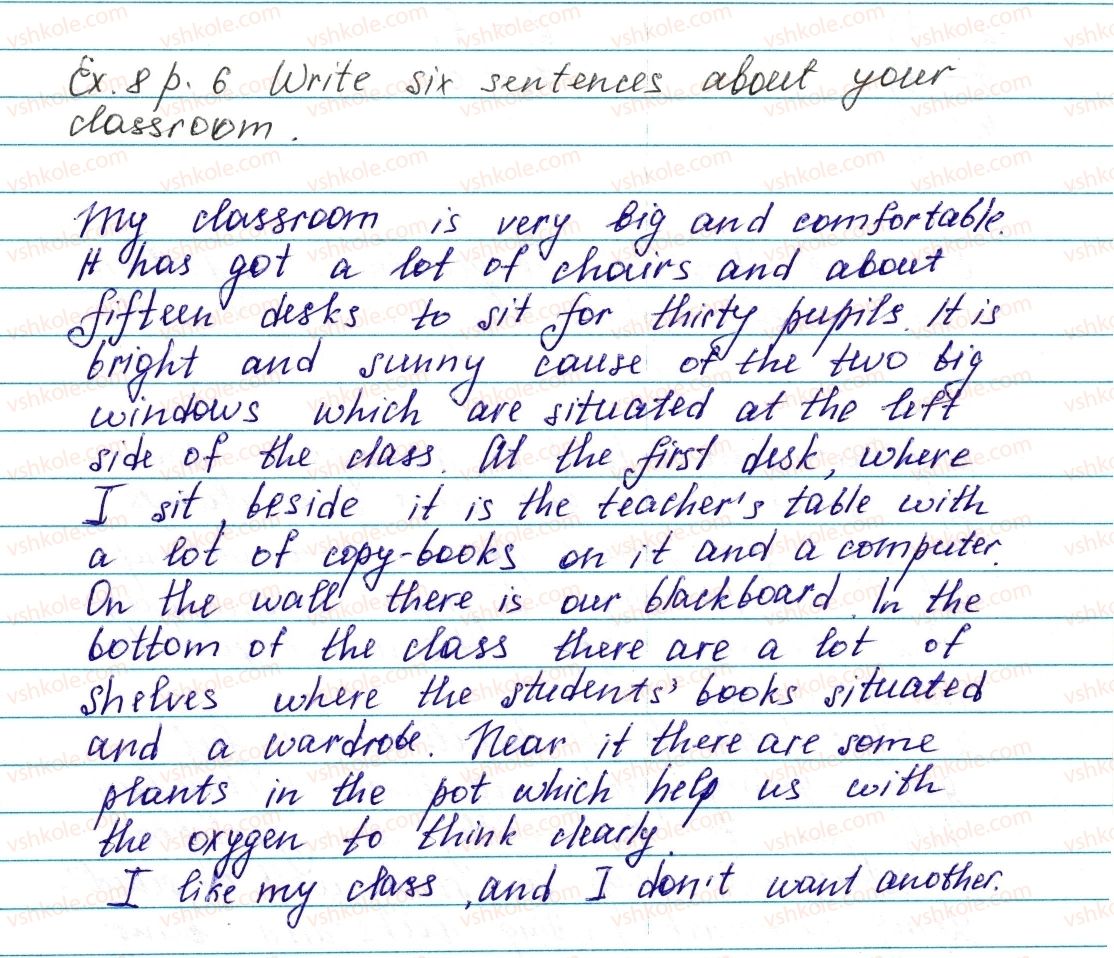 Ex. 8 p. 6 Write six sentences about your
classroom.
My classroom is very big and comfortable.
It has got a lot of chairs and about
fifteen desks to sit for thirty pupils. It is
bright and sunny cause of the two big
windows which are situated at the left
side of the class. At the first desk, where
I sit, beside it is the teacher's table with
a lot of copy-books on it and a computer.
On the wall there is our blackboard. In the
bottom of the class there are a lot of
shelves where the students' books situated
and a wardrobe. Near it there are some
plants in the pot which help us with
the oxygen to think clearly.
I like my class, and I don't want another.
vshkole.com